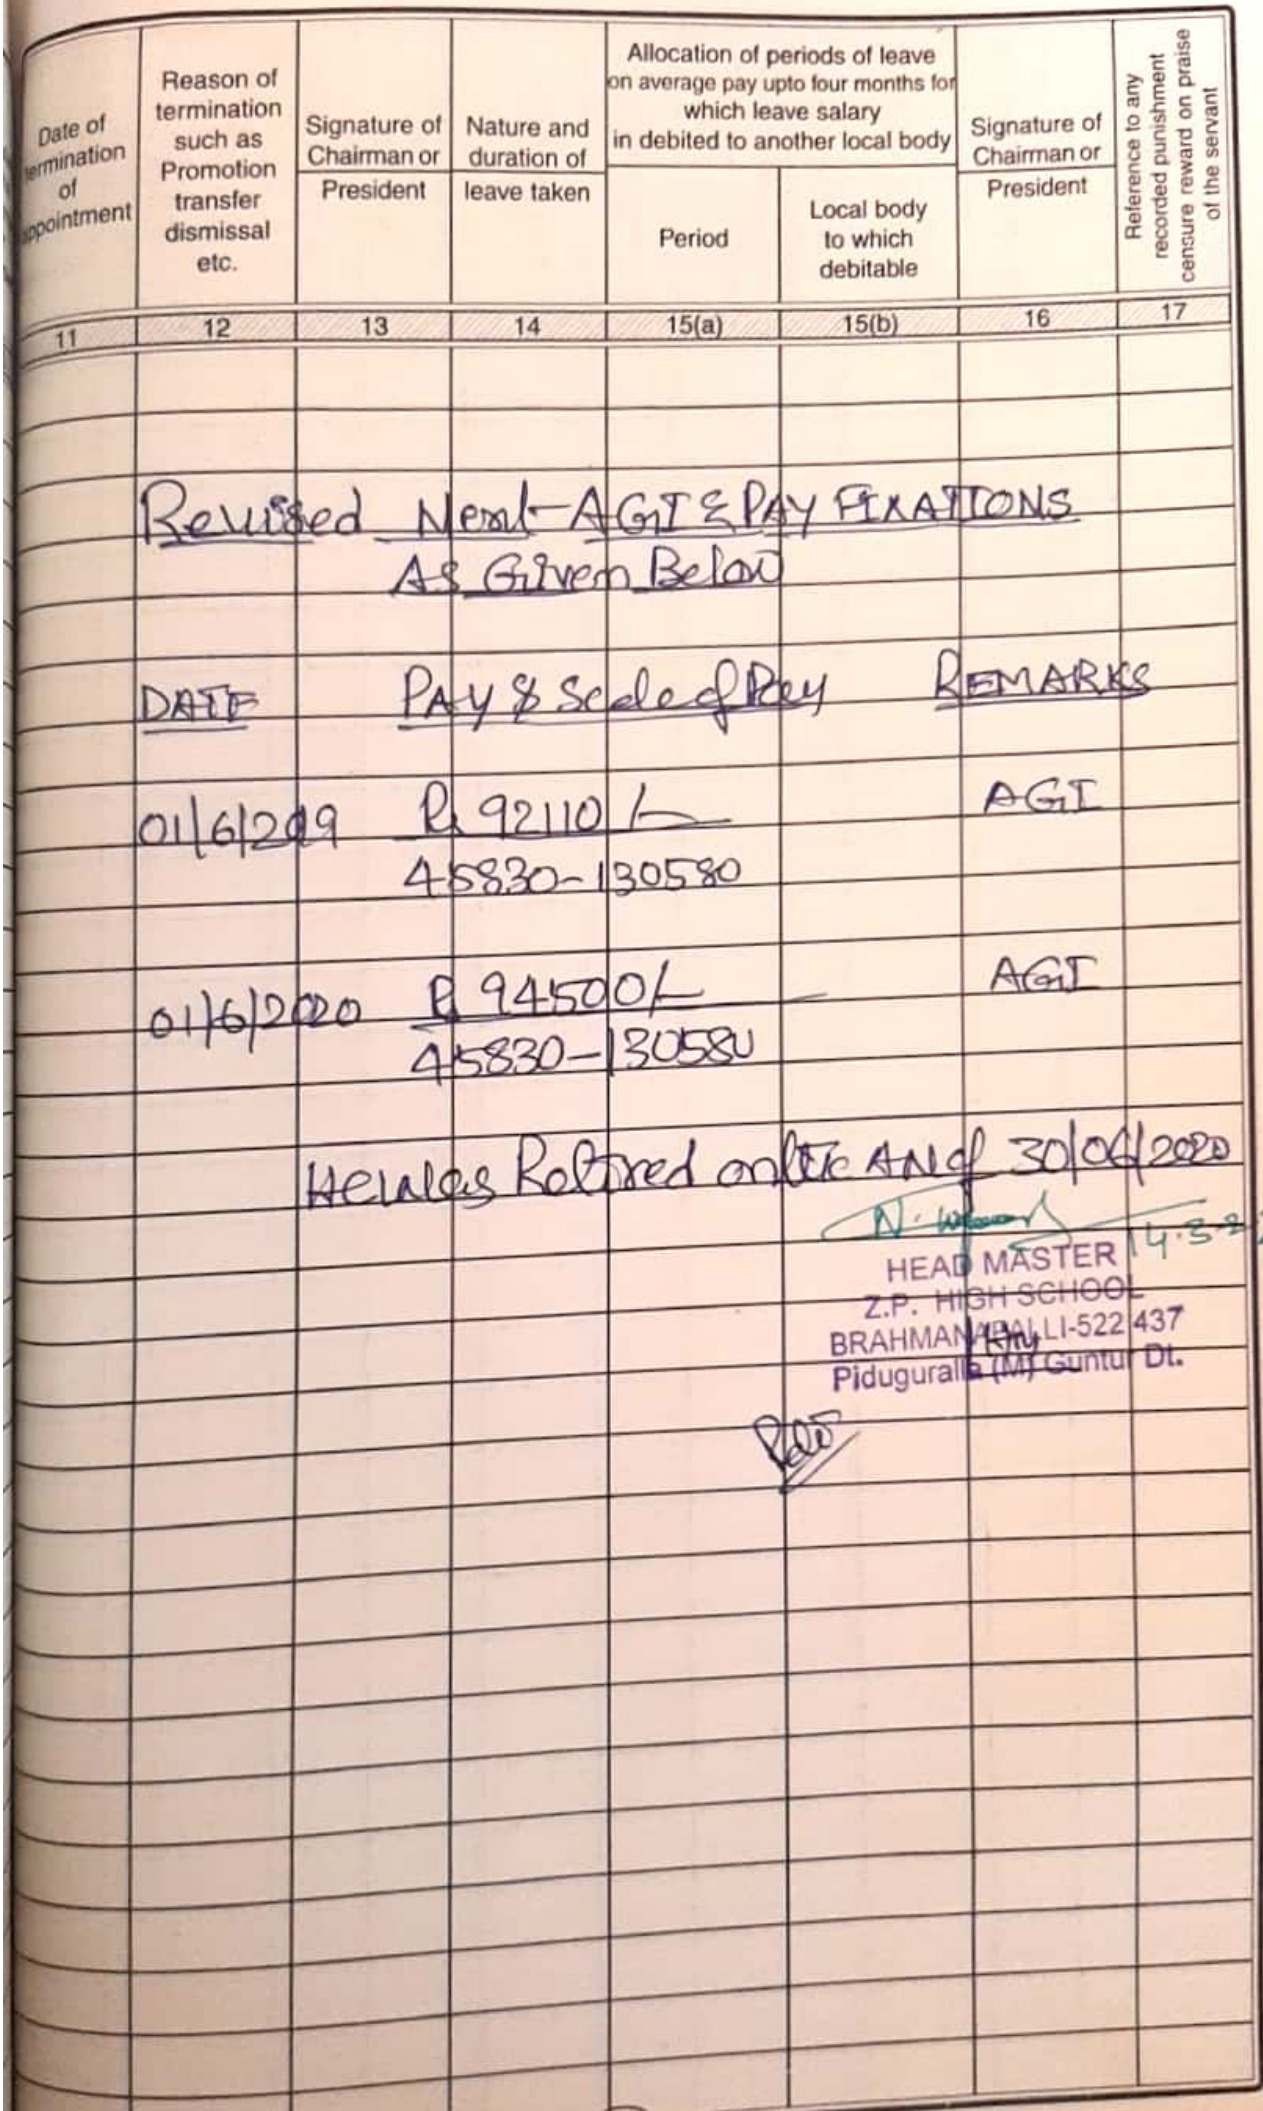 Date of
termination
of
appointment
Reason of
termination
such as
Promotion
transfer
dismissal
etc.
Signature of
Chairman or
President
Nature and
duration of
leave taken
Allocation of periods of leave
on average pay upto four months for
which leave salary
in debited to another local body
Period
Local body
to which
debitable
Signature of
Chairman or
President
Reference to any
recorded punishment
censure reward on praise
of the servant
11 12 13 14 15(a) 15(b) 16 17
Revised Next AGI & PAY FIXATIONS
As Given Below
DATE PAY & Scale of Pay REMARKS
01/6/2019 Rs 92110/- AGI
45830-130580
01/6/2020 Rs 94500/- AGI
45830-130580
He was Retired on the AN of 30/06/2020
HEAD MASTER
Z.P. HIGH SCHOOL
BRAHMANAPALLI-522 437
Piduguralla (M) Guntur Dt.